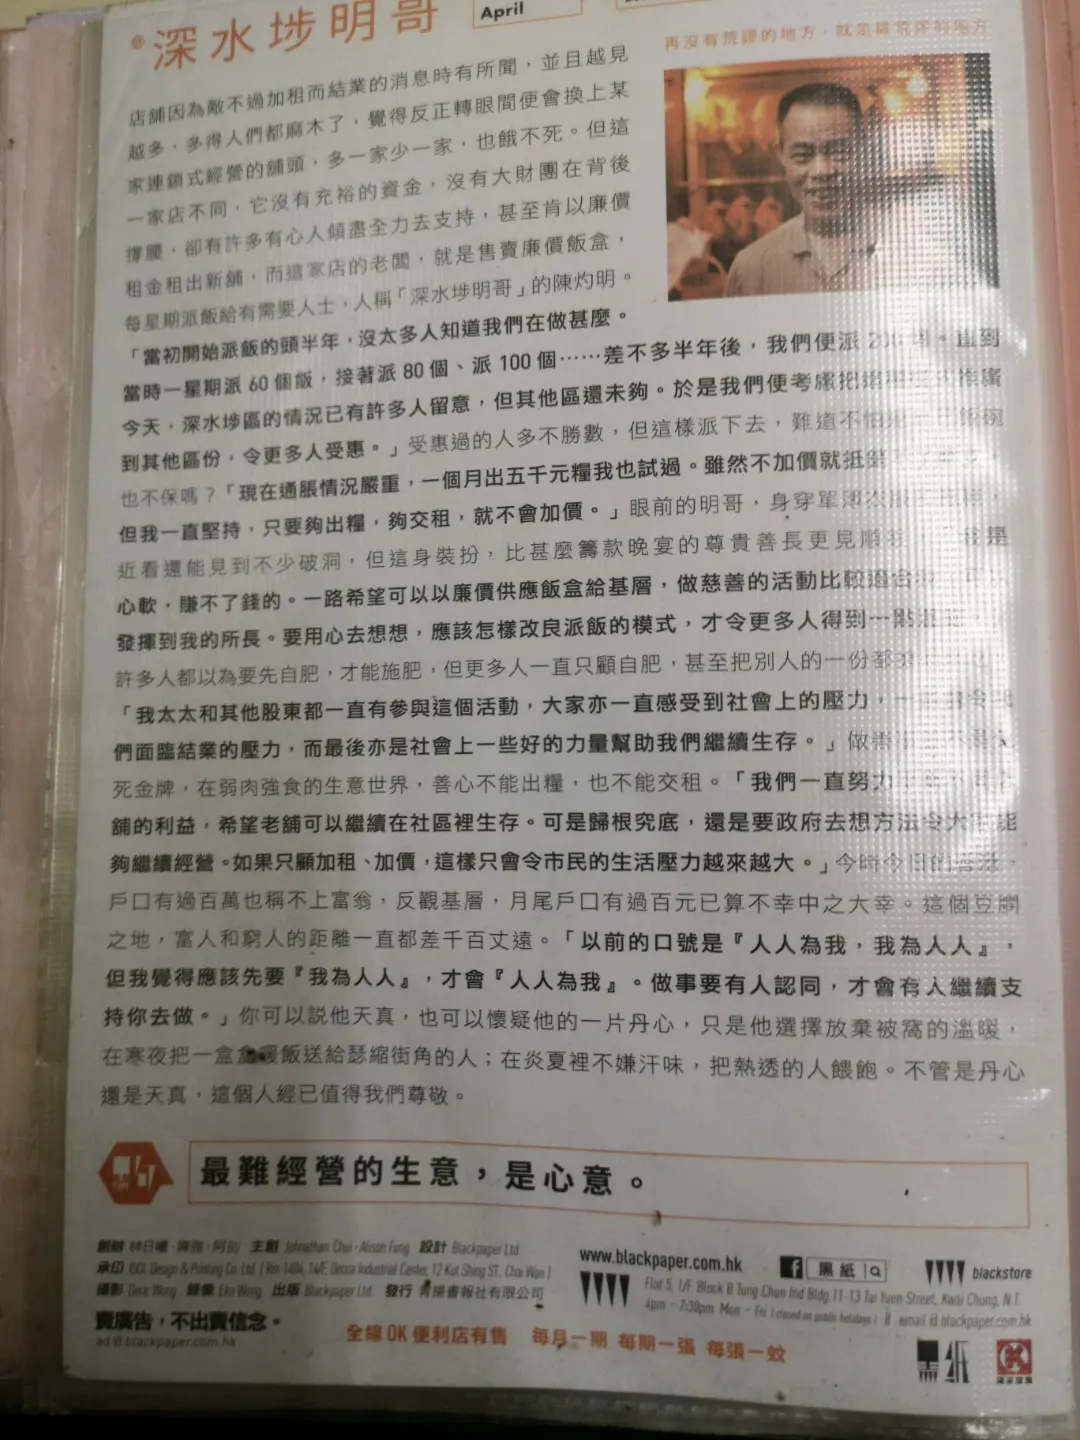 @深水埗明哥
April
再沒有荒謬的地方，就是
店舖因為敵不過加租而結業的消息時有所聞，並且越見
越多，多得人們都麻木了，覺得反正轉眼間便會換上某
家連鎖式經營的舖頭，多一家少一家，也餓不死。但這
一家店不同，它沒有充裕的資金，沒有大財團在背後
撐腰，卻有許多有心人傾盡全力去支持，甚至肯以廉價
租金租出新舖，而這家店的老闆，就是售賣廉價飯盒，
每星期派飯給有需要人士，人稱「深水埗明哥」的陳灼明。
「當初開始派飯的頭半年，沒太多人知道我們在做甚麼。
當時一星期派 60 個飯，接著派 80 個、派 100 個……差不多半年後，我們便派 200 個。直到
今天，深水埗區的情況已有許多人留意，但其他區還未夠。於是我們便考慮把
到其他區份，令更多人受惠。」受惠過的人多不勝數，但這樣派下去，難道不怕
也不保嗎？「現在通脹情況嚴重，一個月出五千元糧我也試過。雖然不加價就
但我一直堅持，只要夠出糧，夠交租，就不會加價。」眼前的明哥，身穿單薄衣服
近看還能見到不少破洞，但這身裝扮，比甚麼籌款晚宴的尊貴善長更見順
心軟，賺不了錢的。一路希望可以以廉價供應飯盒給基層，做慈善的活動比較適合
發揮到我的所長。要用心去想想，應該怎樣改良派飯的模式，才令更多人得到一點
許多人都以為要先自肥，才能施肥，但更多人一直只顧自肥，甚至把別人的一份都
「我太太和其他股東都一直有參與這個活動，大家亦一直感受到社會上的壓力，
們面臨結業的壓力，而最後亦是社會上一些好的力量幫助我們繼續生存。」做
死金牌，在弱肉強食的生意世界，善心不能出糧，也不能交租。「我們一直努力
舖的利益，希望老舖可以繼續在社區裡生存。可是歸根究底，還是要政府去想方法令大家能
夠繼續經營。如果只顧加租、加價，這樣只會令市民的生活壓力越來越大。」今時今日的香港，
戶口有過百萬也稱不上富翁，反觀基層，月尾戶口有過百元已算不幸中之大幸。這個豆腐
之地，富人和窮人的距離一直都差千百丈遠。「以前的口號是『人人為我，我為人人』，
但我覺得應該先要『我為人人』，才會『人人為我』。做事要有人認同，才會有人繼續支
持你去做。」你可以說他天真，也可以懷疑他的一片丹心，只是他選擇放棄被窩的溫暖，
在寒夜把一盒盒暖飯送給瑟縮街角的人；在炎夏裡不嫌汗味，把熱透的人餵飽。不管是丹心
還是天真，這個人經已值得我們尊敬。
最難經營的生意，是心意。
創辦 林日曦·陳強·阿Bu 主創 Johnathan Chui · Alison Fung 設計 Blackpaper Ltd.
承印 IDOL Design & Printing Co. Ltd. ( Rm 1404, 14/F, Decca Industrial Center, 12 Kut Shing ST, Chai Wan )
攝影 Deric Wong 錄像 Eko Wong 出版 Blackpaper Ltd. 發行 青揚書報社有限公司
賣廣告，不出賣信念。
ad @ blackpaper.com.hk
全線 OK 便利店有售 每月一期 每期一張 每張一蚊
www.blackpaper.com.hk
f 黑紙
blackstore
Flat 5, 1/F, Block B Tung Chun Ind Bldg, 11-13 Tai Yuen Street, Kwai Chung, N.T.
4pm - 7:30pm Mon - Fri ( closed on public holidays ) || email @ blackpaper.com.hk
黑紙